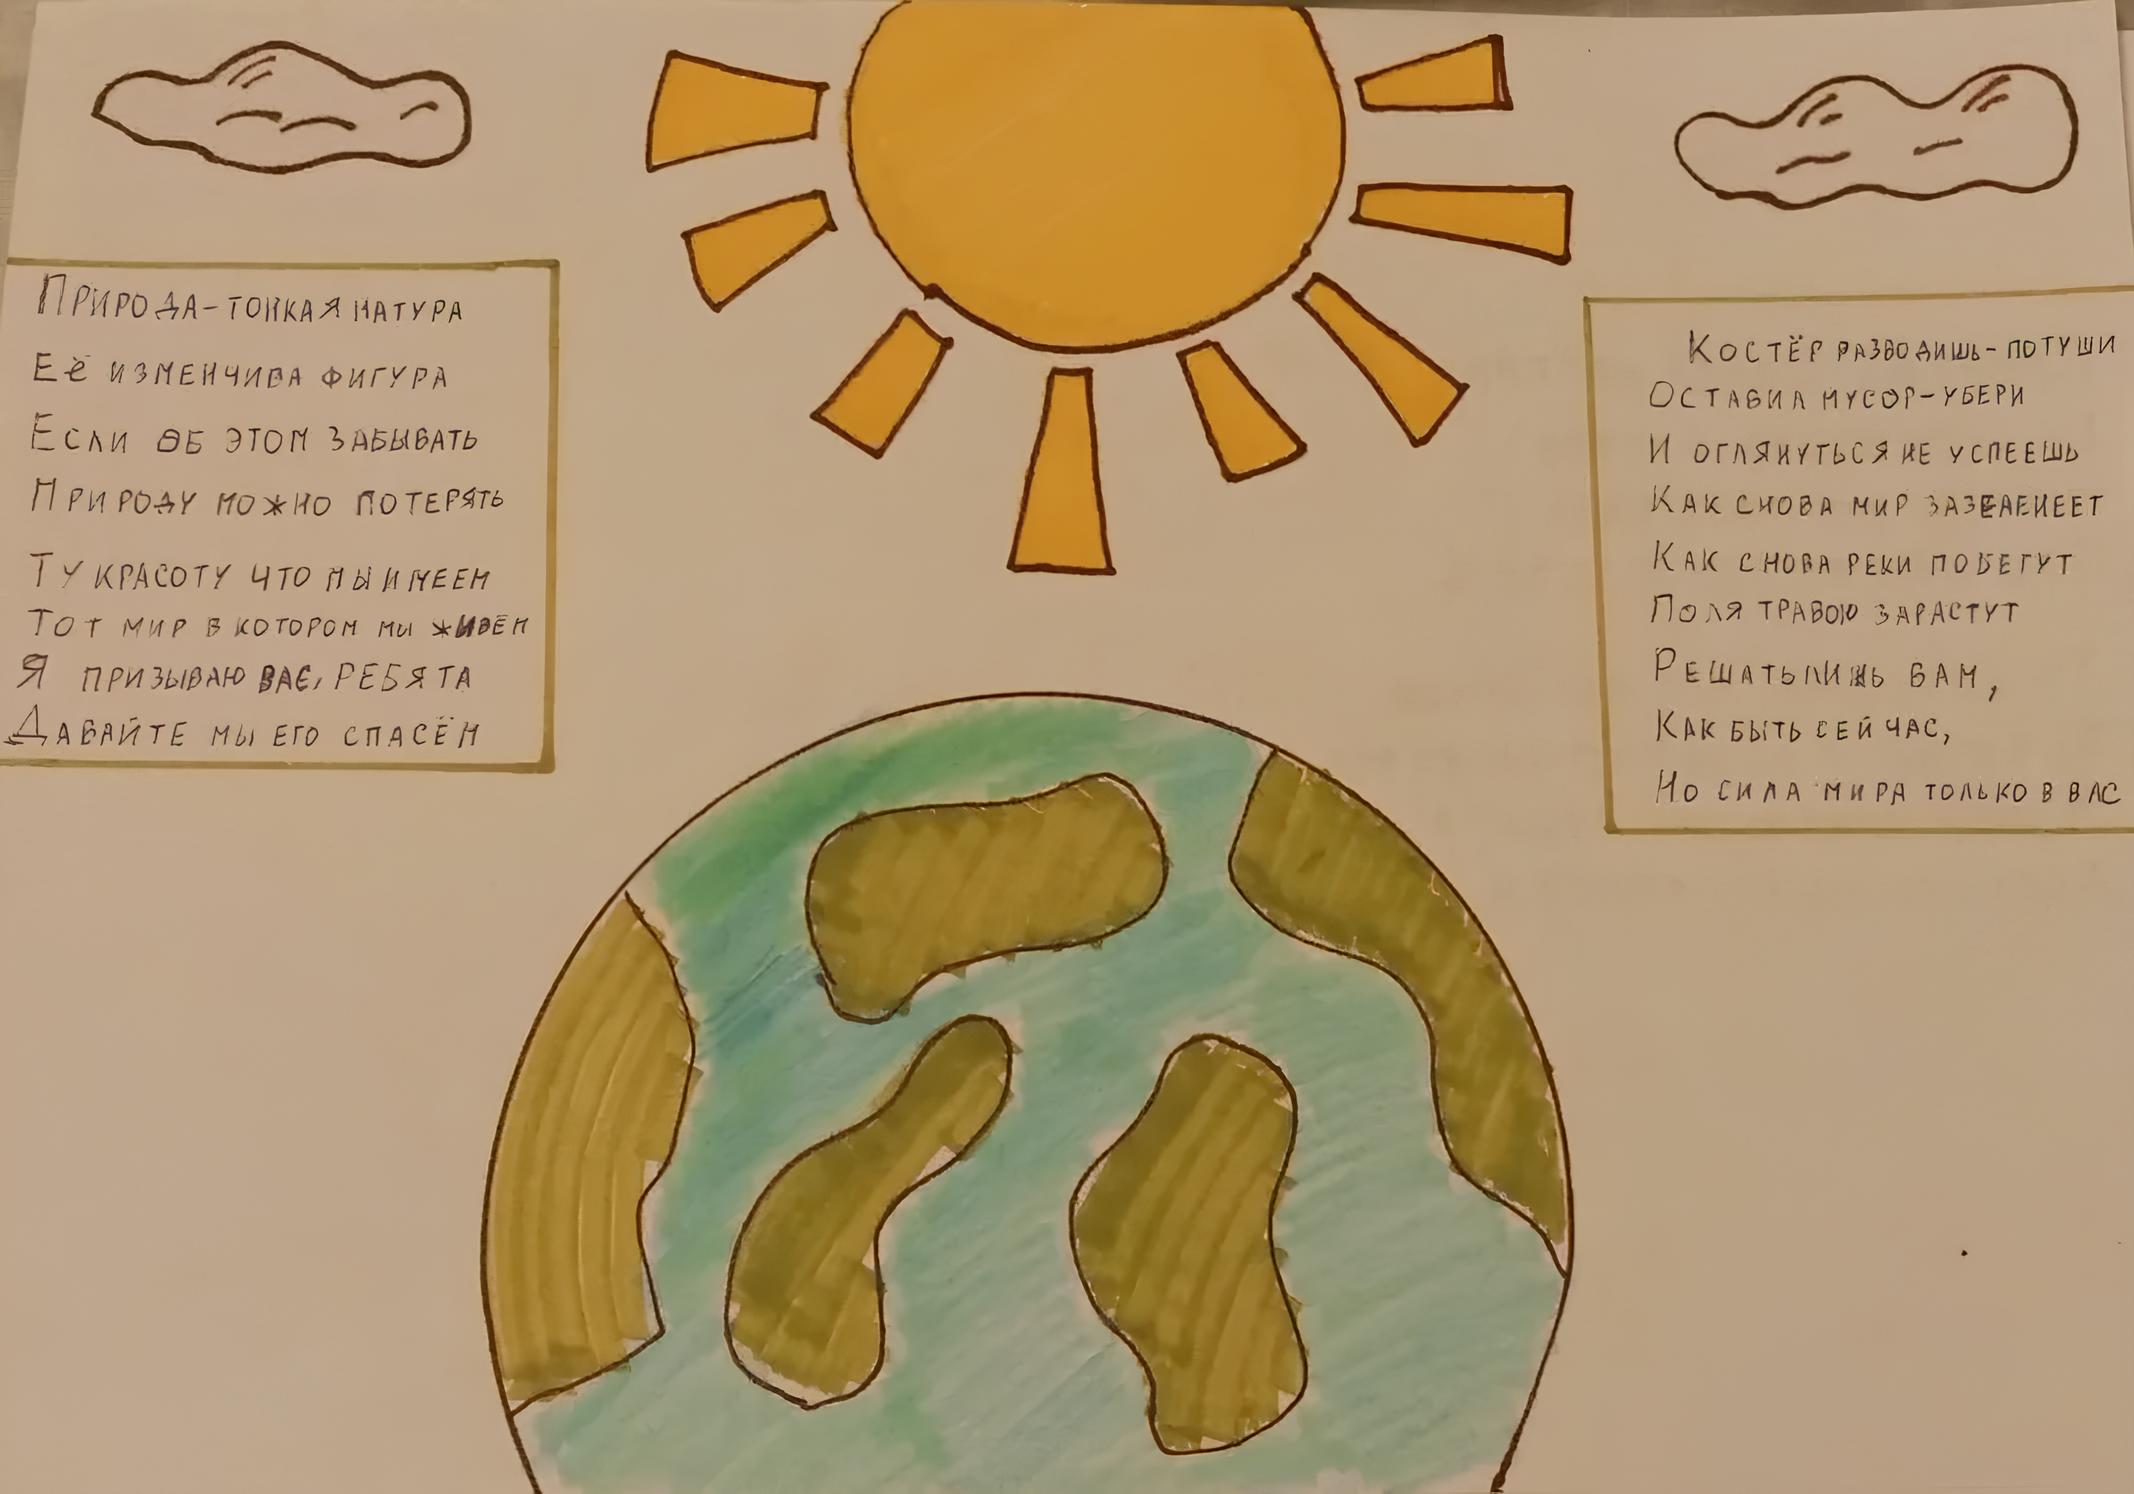 Природа-тонкая натура
Её изменчива фигура
Если об этом забывать
Природу можно потерять
Ту красоту что мы имеем
Тот мир в котором мы живём
Я призываю вас, ребята
Давайте мы его спасём
Костёр разводишь-потуши
Оставил мусор-убери
И оглянуться не успеешь
Как снова мир зазеленеет
Как снова реки побегут
Поля травою зарастут
Решать лишь вам,
Как быть сейчас,
Но сила мира только в вас